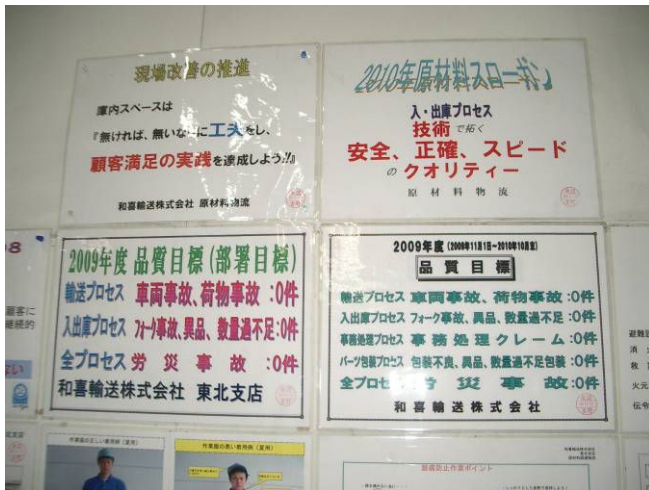 現場改善の推進
庫内スペースは
『無ければ、無いなりに工夫をし、
顧客満足の実践を達成しよう!!』
和喜輸送株式会社 原材料物流
2010年原材料スローガン
入・出庫プロセス
技術で拓く
安全、正確、スピード
のクオリティー
原材料物流
2009年度 品質目標(部署目標)
輸送プロセス 車両事故、荷物事故:0件
入出庫プロセス フォーク事故、異品、数量過不足:0件
全プロセス 労災事故:0件
和喜輸送株式会社 東北支店
2009年度(2009年11月1日~2010年10月末)
品質目標
輸送プロセス 車両事故、荷物事故:0件
入出庫プロセス フォーク事故、異品、数量過不足:0件
事務処理プロセス 事務処理クレーム:0件
パーツ包装プロセス 包装不良、異品、数量過不足包装:0件
全プロセス 労災事故:0件
和喜輸送株式会社
8
顧客に
継続的
ない
支店
避難
消火
救
火元
伝令
作業服の正しい着用例(夏用)
作業服の悪い着用例(夏用)
腰痛防止作業ポイント